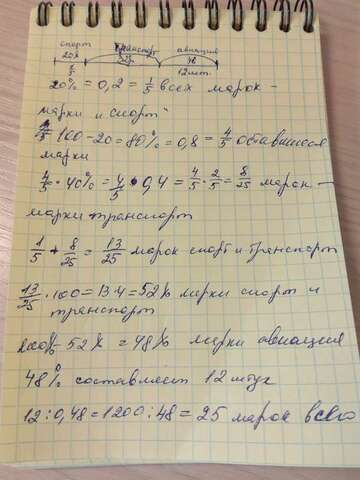 спорт транспорт авиация
20%
1/5 12 шт.
20% = 0,2 = 1/5 всех марок -
марки и спорт"
100-20=80%=0,8 = 4/5 оставшиеся
марки
4/5 · 40% = 4/5 · 0,4 = 4/5 · 2/5 = 8/25 марок -
марки транспорт
1/5 + 8/25 = 13/25 марок спорт и транспорт
13/25 · 100 = 13·4 = 52% марки спорт и
транспорт
100% - 52% = 48% марки авиация
48% составляет 12 штук
12 : 0,48 = 1200 : 48 = 25 марок всего